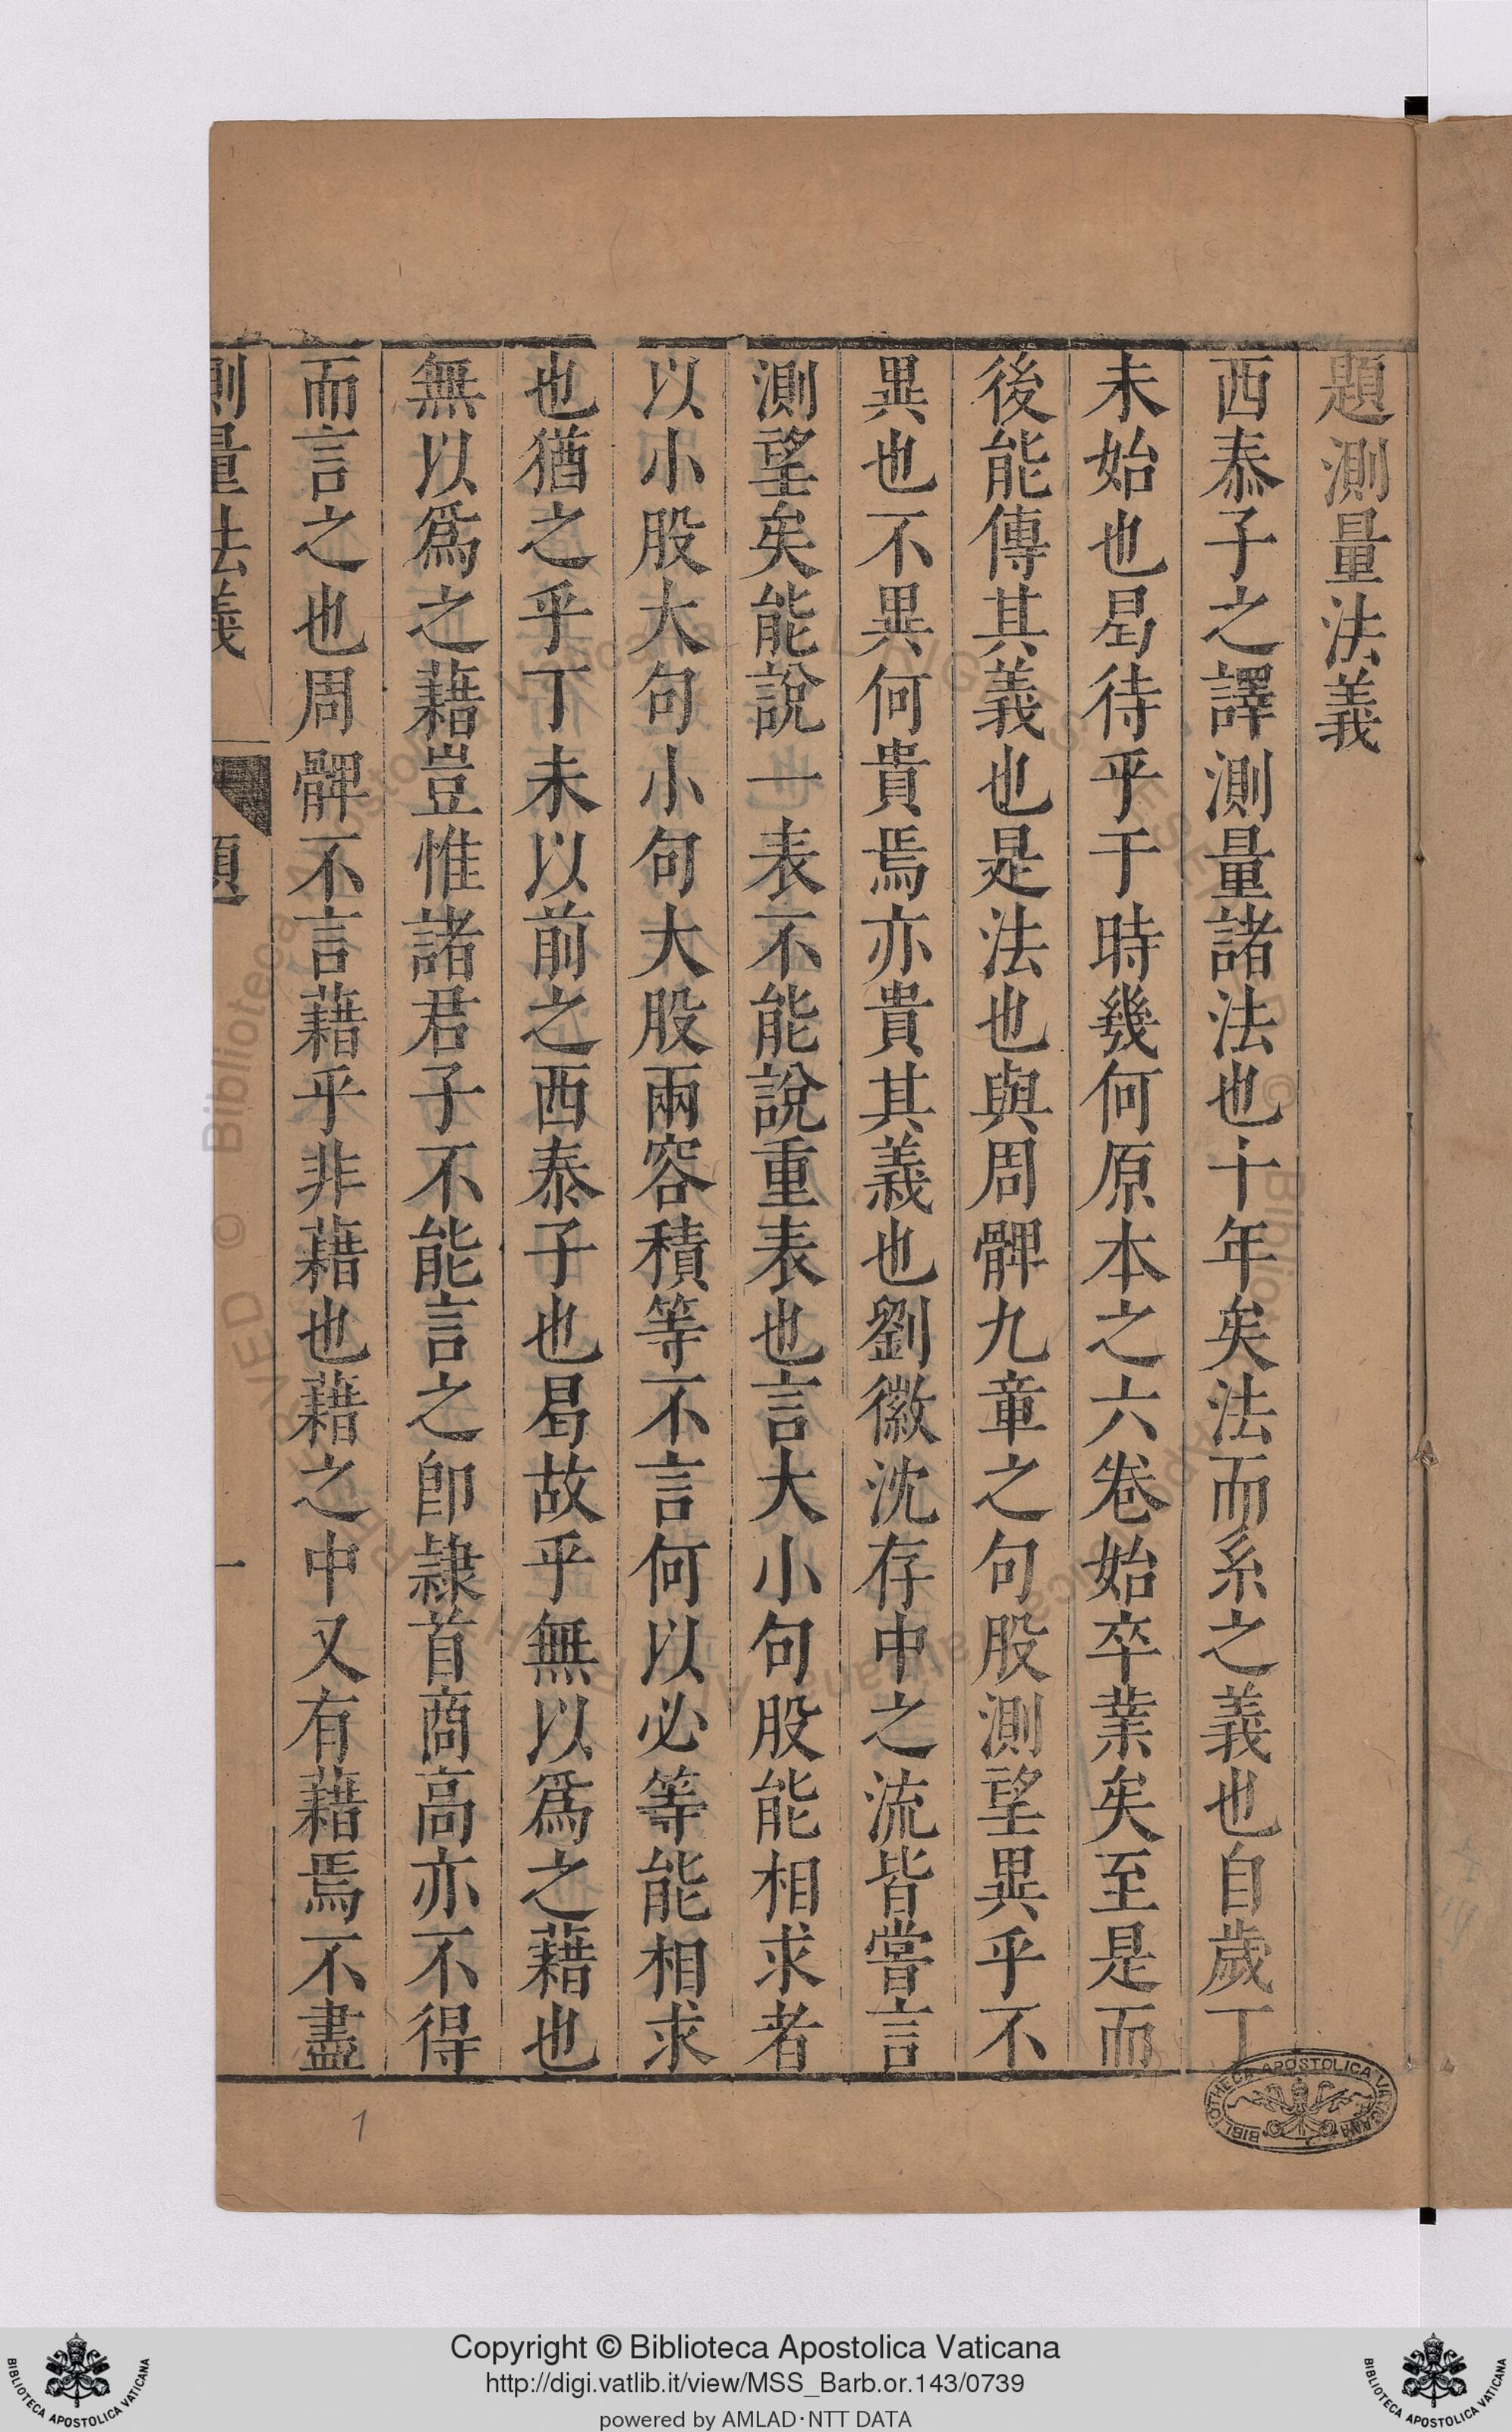 題測量法義
西泰子之譯測量諸法也十年矣法而系之義也自歲丁
未始也曷待乎于時幾何原本之六卷始卒業矣至是而
後能傳其義也是法也與周髀九章之句股測望異乎不
異也不異何貴焉亦貴其義也劉徽沈存中之流皆嘗言
測望矣能說一表不能說重表也言大小句股能相求者
以小股大句小句大股兩容積等不言何以必等能相求
也猶之乎丁未以前之西泰子也曷故乎無以爲之藉也
無以爲之藉豈惟諸君子不能言之卽隸首商高亦不得
而言之也周髀不言藉乎非藉也藉之中又有藉焉不盡
測量法義 題 一
1
BIBLIOTHECA APOSTOLICA VATICANA
Copyright © Biblioteca Apostolica Vaticana
http://digi.vatlib.it/view/MSS_Barb.or.143/0739
powered by AMLAD·NTT DATA
BIBLIOTECA APOSTOLICA VATICANA
BIBLIOTECA APOSTOLICA VATICANA